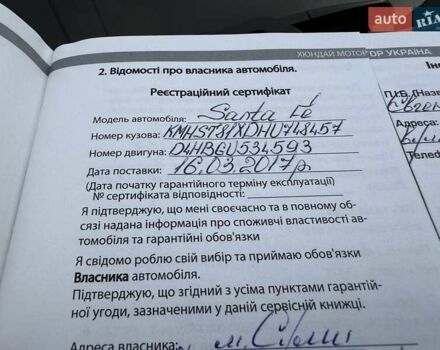 auto RIA
ХЮНДАЙ МОТОР УКРАЇНА
2. Відомості про власника автомобіля.
Реєстраційний сертифікат
Модель автомобіля: Santa Fé
Номер кузова: KMHST81XDHU748457
Номер двигуна: D4HBGU534593
Дата поставки: 16.03.2017р
(Дата початку гарантійного терміну експлуатації)
№ сертифіката відповідності:
Я підтверджую, що мені своєчасно та в повному об-
сязі надана інформація про споживчі властивості ав-
томобіля та гарантійні обов'язки
Я свідомо роблю свій вибір та приймаю обов'язки
Власника автомобіля.
Підтверджую, що згідний з усіма пунктами гарантій-
ної угоди, зазначеними у даній сервісній книжці.
Адреса власника: м. Суми
П.І.Б. (Назва
Адреса:
Телеф